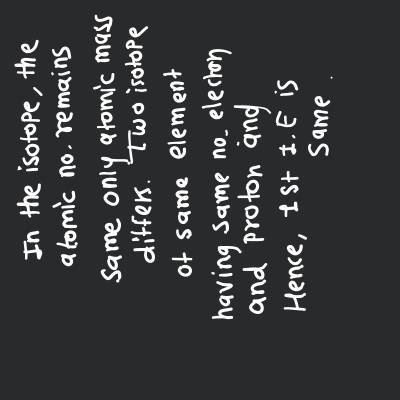 In the isotope, the
atomic no. remains
Same only atomic mass
differs. Two isotope
of same element
having same no. electon
and proton and
Hence, 1st I.E is
Same.